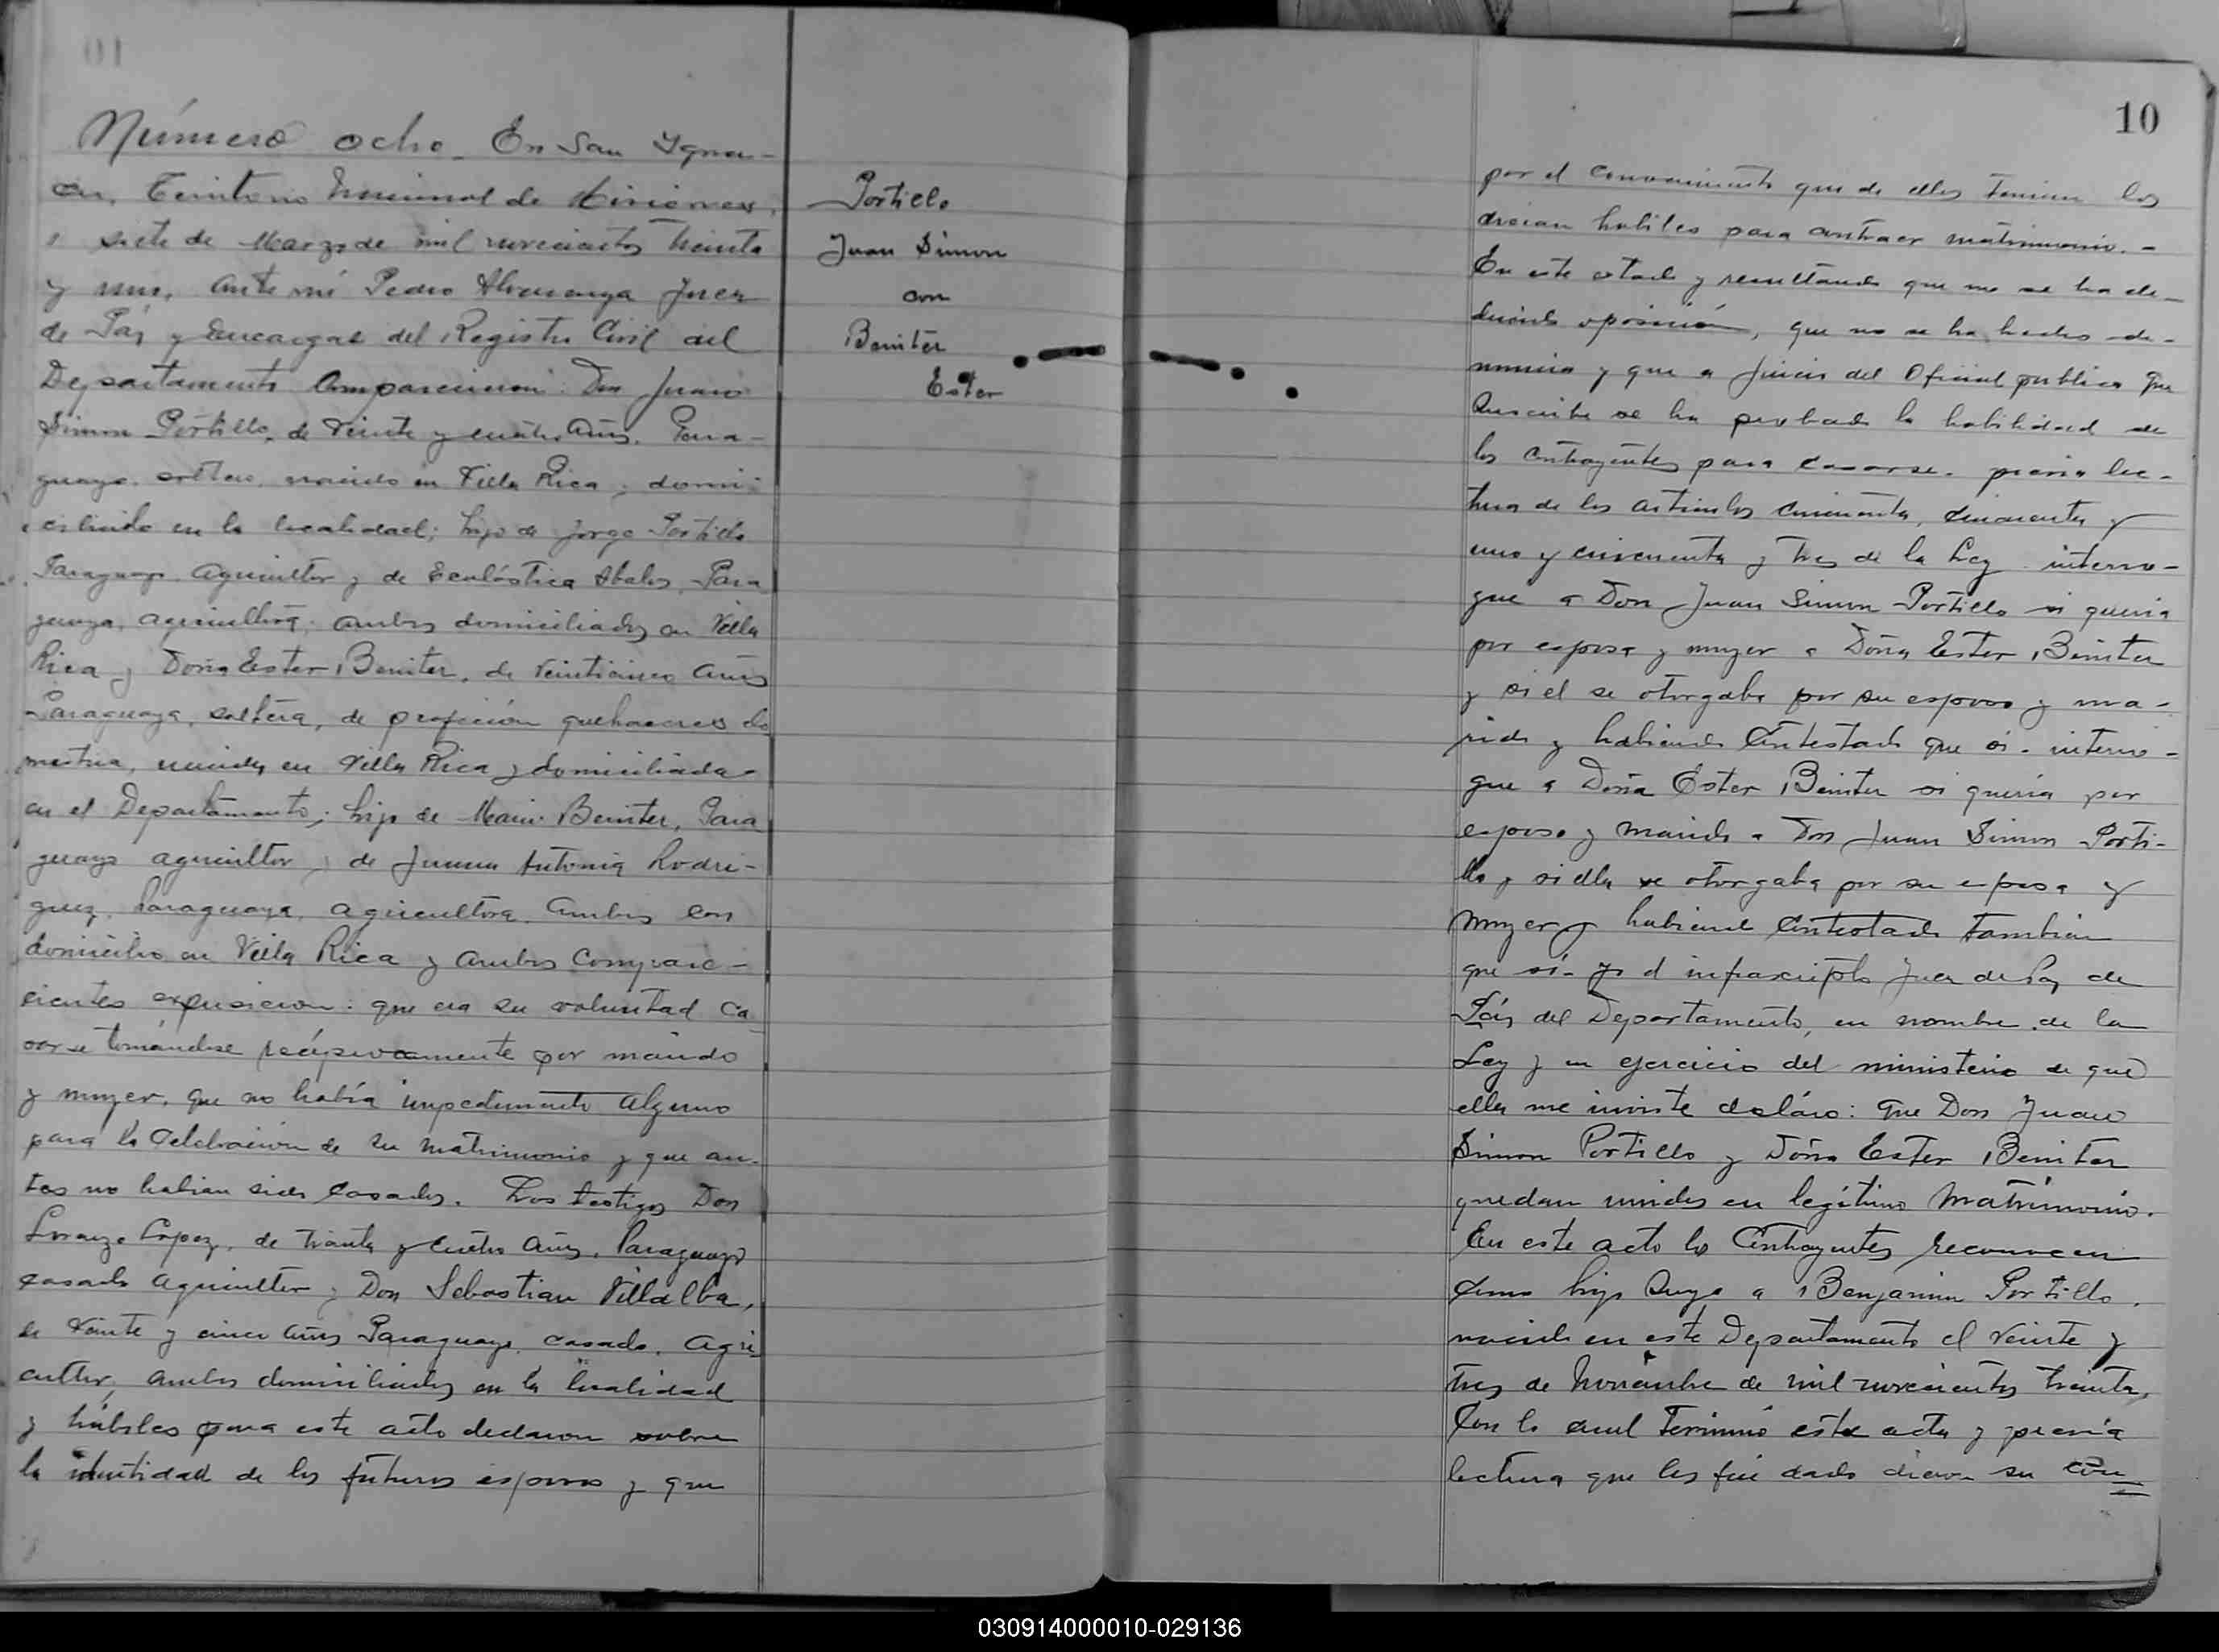 Número ocho. En San Ygna-
cio, Territorio Nacional de Misiones,
a siete de Marzo de mil novecientos treinta
y uno, ante mí Pedro Alvarenga Juez
de Páz y Encargado del Registro Civil del
Departamento Comparecieron: Don Juan
Simon Portillo, de veinte y cuatro años, Para-
guayo, soltero, nacido en Villa Rica, domi-
ciliado en la localidad; hijo de Jorge Portillo
Paraguayo Agricultor y de Escolástica Abalos, Para
guaya, agricultora; ambos domiciliados en Villa
Rica y Doña Ester Beniter, de veinticinco años
Paraguaya, soltera, de profeción quehaceres do
mestica, nacida en Villa Rica y domiciliada
en el Departamento; hija de Beniter, Para
guayo agricultor y de Juana Antonia Rodri-
guez, Paraguaya, agricultora, ambos con
domicilio en Villa Rica y ambos Compare-
cientes expusieron: que era su voluntad ca
sarse tomándose reciprocamente por marido
y mujer, que no había impedimento alguno
para la Celebración de su matrimonio y que an-
tes no habian sido casados. Los testigos Don
Lorenzo Lopez, de treinta y cuatro años, Paraguayo
casado Agricultor y Don Sebastian Villalba,
de veinte y cinco años Paraguayo, casado, Agri
cultor, ambos domiciliados en la localidad
y hábiles para este acto declaron sobre
la identidad de los futuros esposos y que
Portillo
Juan Simon
con
Beniter
Ester
10
por el conocimiento que de ellos tenian los
creian habiles para contraer matrimonio.-
En este estado y resultando que no se ha de-
ducido oposición, que no se ha hecho de-
nuncia y que a juicio del Oficial publico que
suscribe se ha probado la habilidad de
los contrayentes para casarse. previa lec-
tura de los articulos cincuenta, cincuenta y
uno y cincuenta y tres de la Ley interro-
gue a Don Juan Simon Portillo si queria
por esposa y mujer a Doña Ester Beniter
y si el se otorgaba por su esposo y ma-
rido y habiendo Contestado que si- interro-
gue a Doña Ester Beniter si quería por
esposo y marido a Don Juan Simon Porti-
llo y si ella se otorgaba por su esposa y
mujer y habiendo Contestado tambien
que sí- yo el infrascripto Juez de Paz de
Páz del Departamento, en nombre de la
Ley y en ejercicio del ministerio de que
ella me inviste declaro: que Don Juan
Simon Portillo y Doña Ester Beniter
quedan unidos en legítimo Matrimonio.
En este acto los Contrayentes reconocen
como hijo suyo a Benjamin Portillo,
nacido en este Departamento el veinte y
tres de Noviembre de mil novecientos treinta,
Con lo cual Terminó esta acta y previa
lectura que les fué dado dieron su con